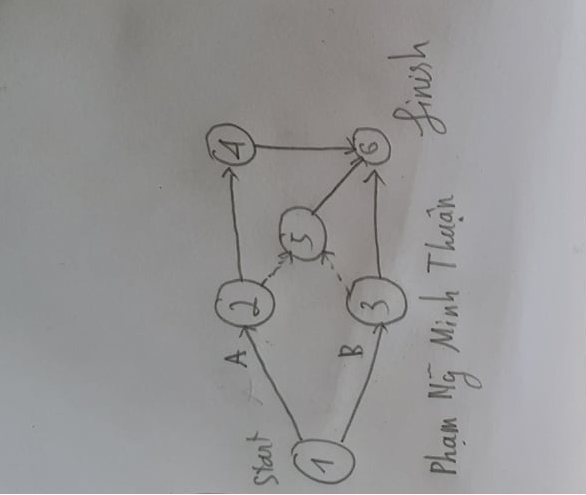 Start
A
B
1
2
3
4
5
6
finish
Phạm Ng̃ Minh Thuận